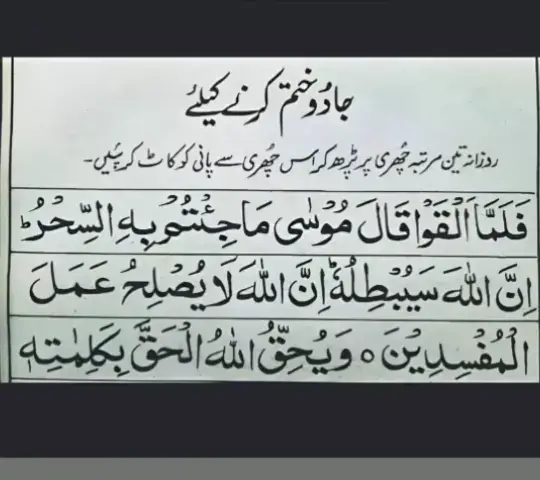 جادُو ختم کرنے کیلئے
روزانہ تین مرتبہ چُھری پر پڑھ کر اس چُھری سے پانی کو کاٹ کر پئیں۔
فَلَمَّاۤ اَلۡقَوۡا قَالَ مُوۡسٰى مَا جِئۡتُمۡ بِهِ السِّحۡرُ ؕ
اِنَّ اللّٰهَ سَيُبۡطِلُهٗ ؕ اِنَّ اللّٰهَ لَا يُصۡلِحُ عَمَلَ
الۡمُفۡسِدِيۡنَ ○ وَيُحِقُّ اللّٰهُ الۡحَقَّ بِكَلِمٰتِهٖ